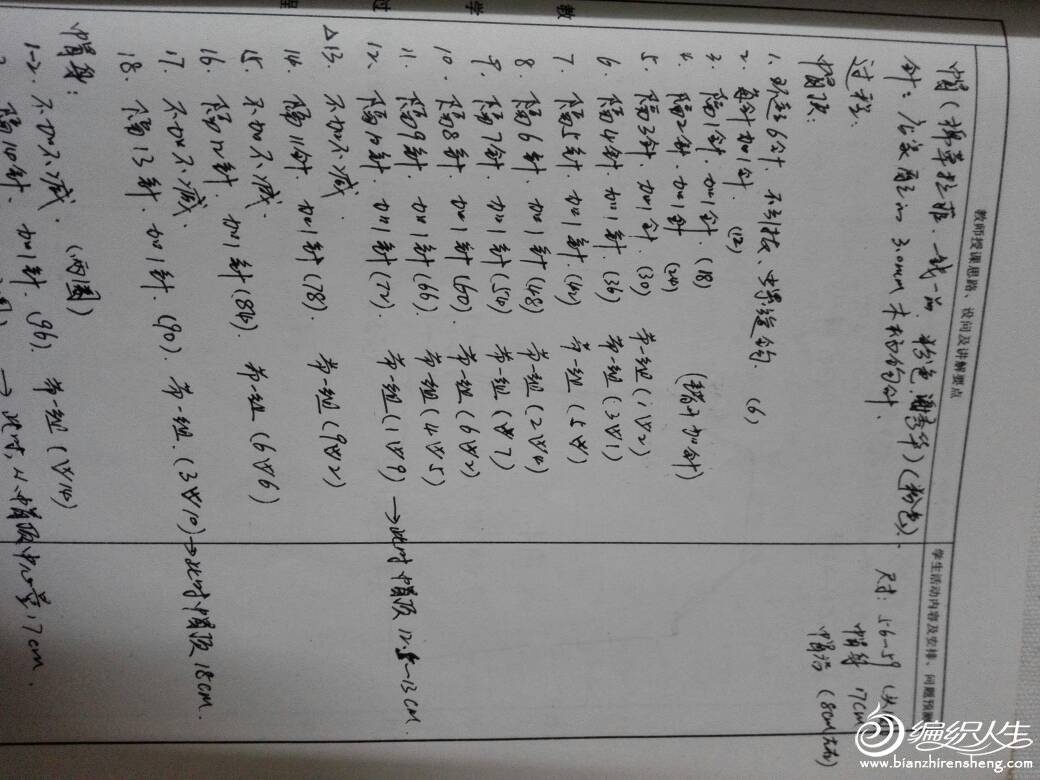 教师授课思路、设问及讲解要点
学生活动内容及安排、问题预
帽(棉草拉菲.一线一品.粉色)(粉色).
针:家用的3.0mm木柄钩针.
尺寸:56-59
帽身 17cm
帽沿 (8cm左右)
过程:
帽顶:
1. 环起6针.不引拔、螺旋钩. (6)
2. 每针加1针. (12)
3. 隔1针.加1针. (18)
4. 隔2针 加1针 (24) (错开加针)
5. 隔3针 加1针. (30) 第一组 (1∨2)
6. 隔4针.加1针. (36) 第一组 (3∨1)
7. 隔5针.加1针 (42) 第一组 (5∨)
8. 隔6针.加1针 (48) 第一组 (2∨4)
9. 隔7针.加1针 (54) 第一组 (∨7)
10. 隔8针 加1针 (60). 第一组 (6∨2)
11. 隔9针.加1针 (66). 第一组 (4∨5)
12. 隔10针.加1针 (72). 第一组 (1∨9) →此时帽顶12.5~13cm
△13. 不加不减.
14. 隔11针.加1针 (78). 第一组 (9∨2)
15. 不加不减.
16. 隔12针.加1针 (84). 第一组 (6∨6)
17. 不加不减
18. 隔13针.加1针. (90). 第一组. (3∨10)→此时帽顶18cm.
帽身:
1-2. 不加不减. (两圈)
隔14针.加1针. (96). 第一组 (∨14)
→此时从帽顶中心量17cm.
数
学
过
程
编织人生
www.bianzhirensheng.com